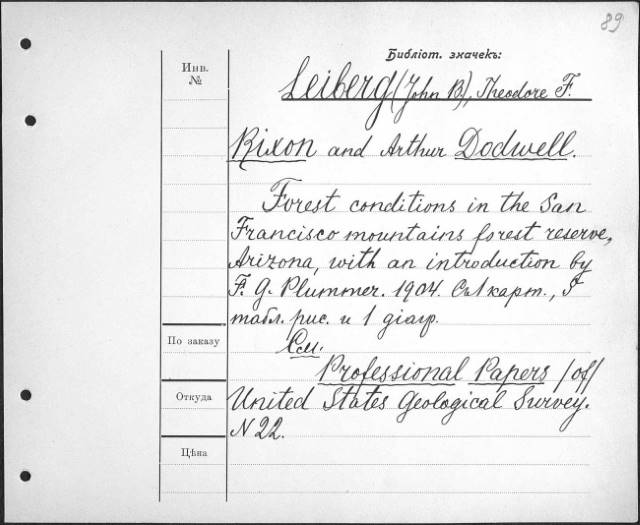 89
Библіот. значекъ:
Инв.
№
Leiberg (John B), Theodore F.
Rixon and Arthur Dodwell.
Forest conditions in the San
Francisco mountains forest reserve,
Arizona, with an introduction by
F. G. Plummer. 1904. карт.,
табл. рис. и 1 діагр.
По заказу
См:
Professional Papers /of/
Откуда
United States Geological Survey.
N 22.
Цѣна